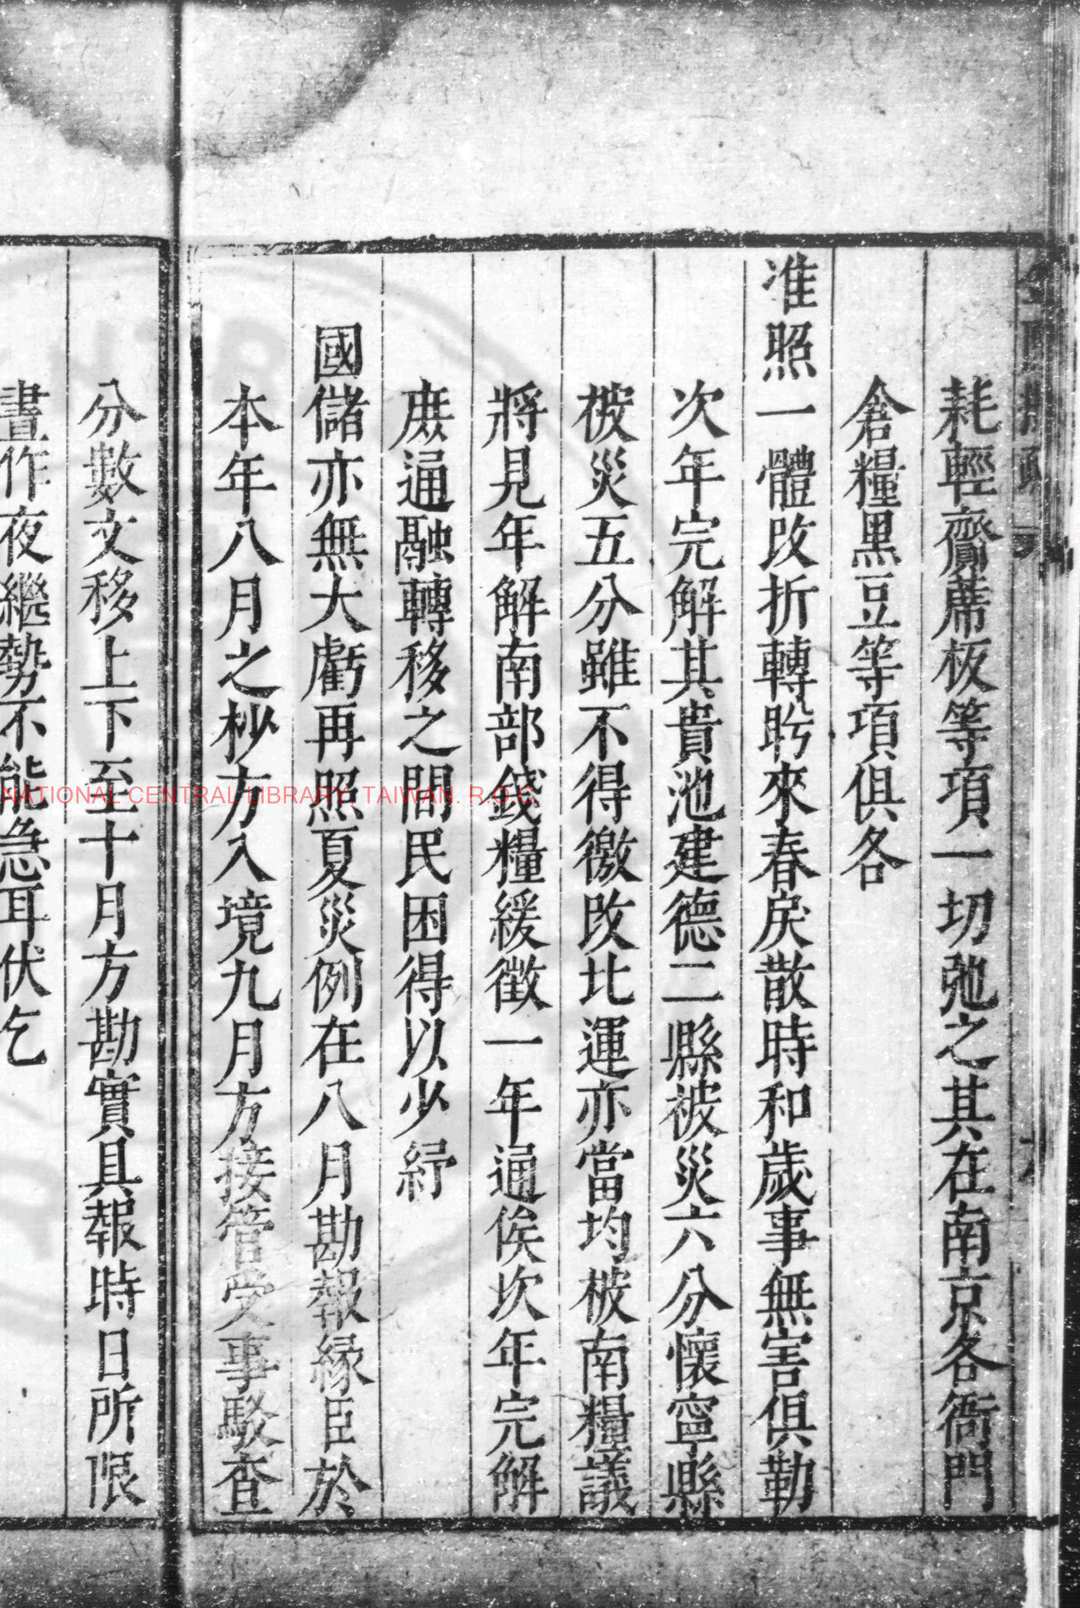 耗輕齎蓆板等項一切弛之其在南京各衙門
倉糧黑豆等項俱各
准照一體改折轉盻來春戾散時和歲事無害俱勒
次年完解其貴池建德二縣被災六分懷寧縣
被災五分雖不得徼改比運亦當均被南糧議
將見年解南部錢糧緩徵一年通俟次年完解
庶通融轉移之間民困得以少紓
國儲亦無大虧再照夏災例在八月勘報緣臣於
本年八月之杪方入境九月方接管受事駁查
分數文移上下至十月方勘實具報時日所限
晝作夜繼勢不能急耳伏乞
NATIONAL CENTRAL LIBRARY, TAIWAN. R.O.C.